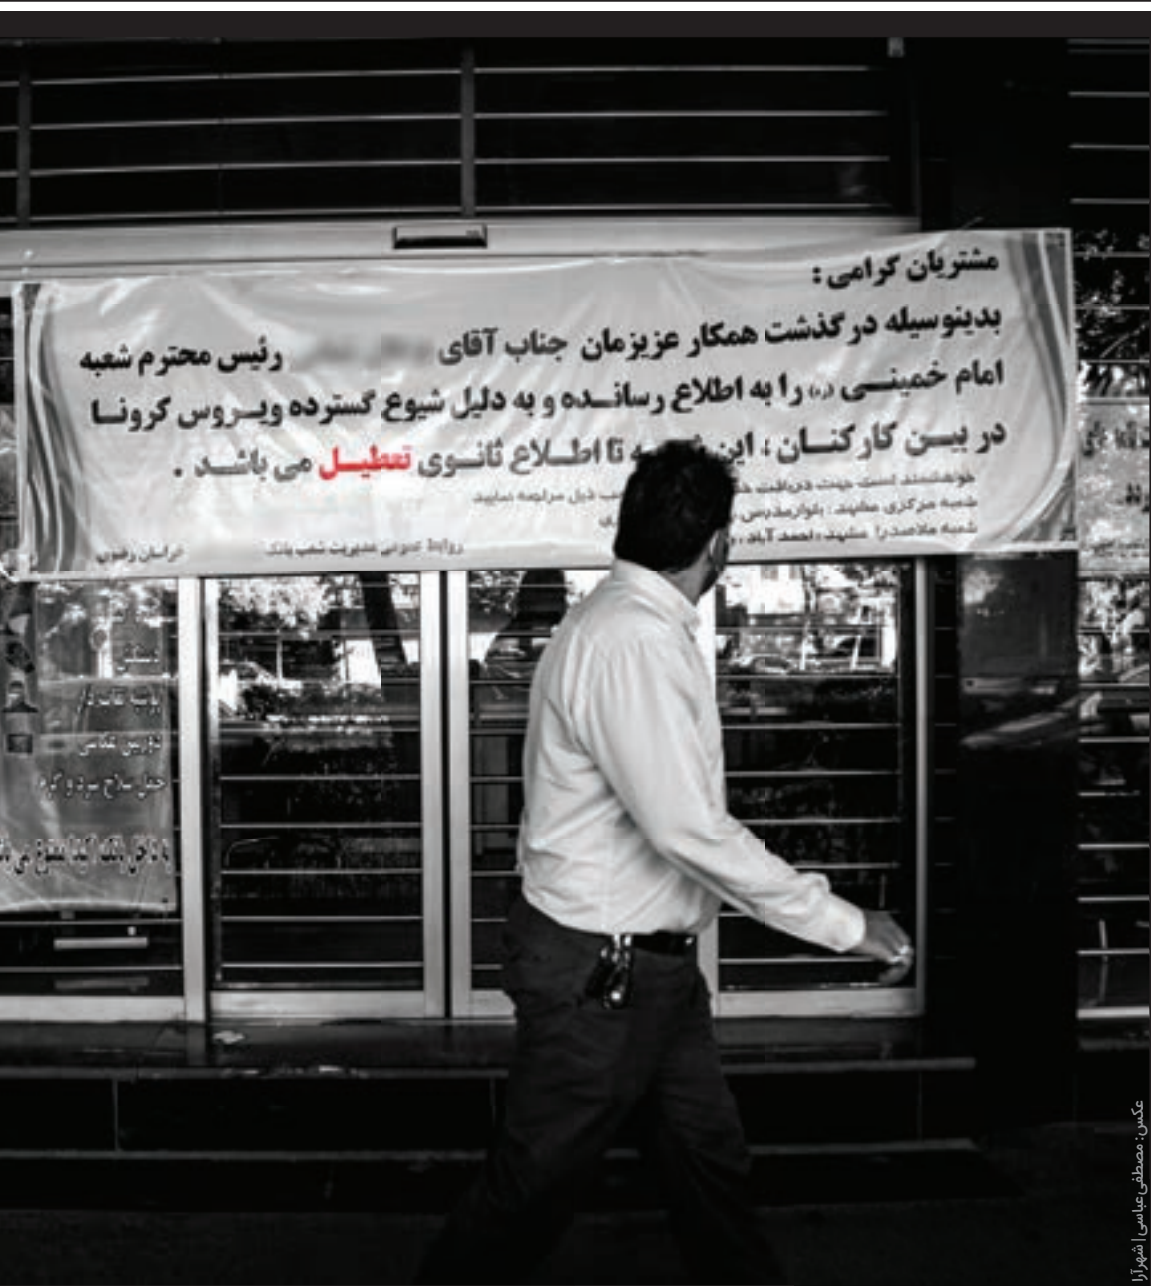 مشتریان گرامی :
بدینوسیله درگذشت همکار عزیزمان جناب آقای رئیس محترم شعبه
امام خمینـی (ره) را به اطلاع رسانـده و به دلیل شیوع گسترده ویـروس کرونـا
در بیـن کارکنـان ؛ این تا اطـلاع ثانـوی تعطیـل می باشـد .
خواهشمند است جهت دریافت ذیل مراجعه نمایید
شعبه مرکزی مشهد : بلوارمدرس
شعبه ملاصدرا مشهد : احمد آباد ،
روابط عمومی مدیریت شعب بانک خراسان رضوی
دوربین عکاسی
حمل سلاح سرد و گرم
به داخل بانک اکیدا ممنوع می
عکس: مصطفی عباسی | شهرآرا